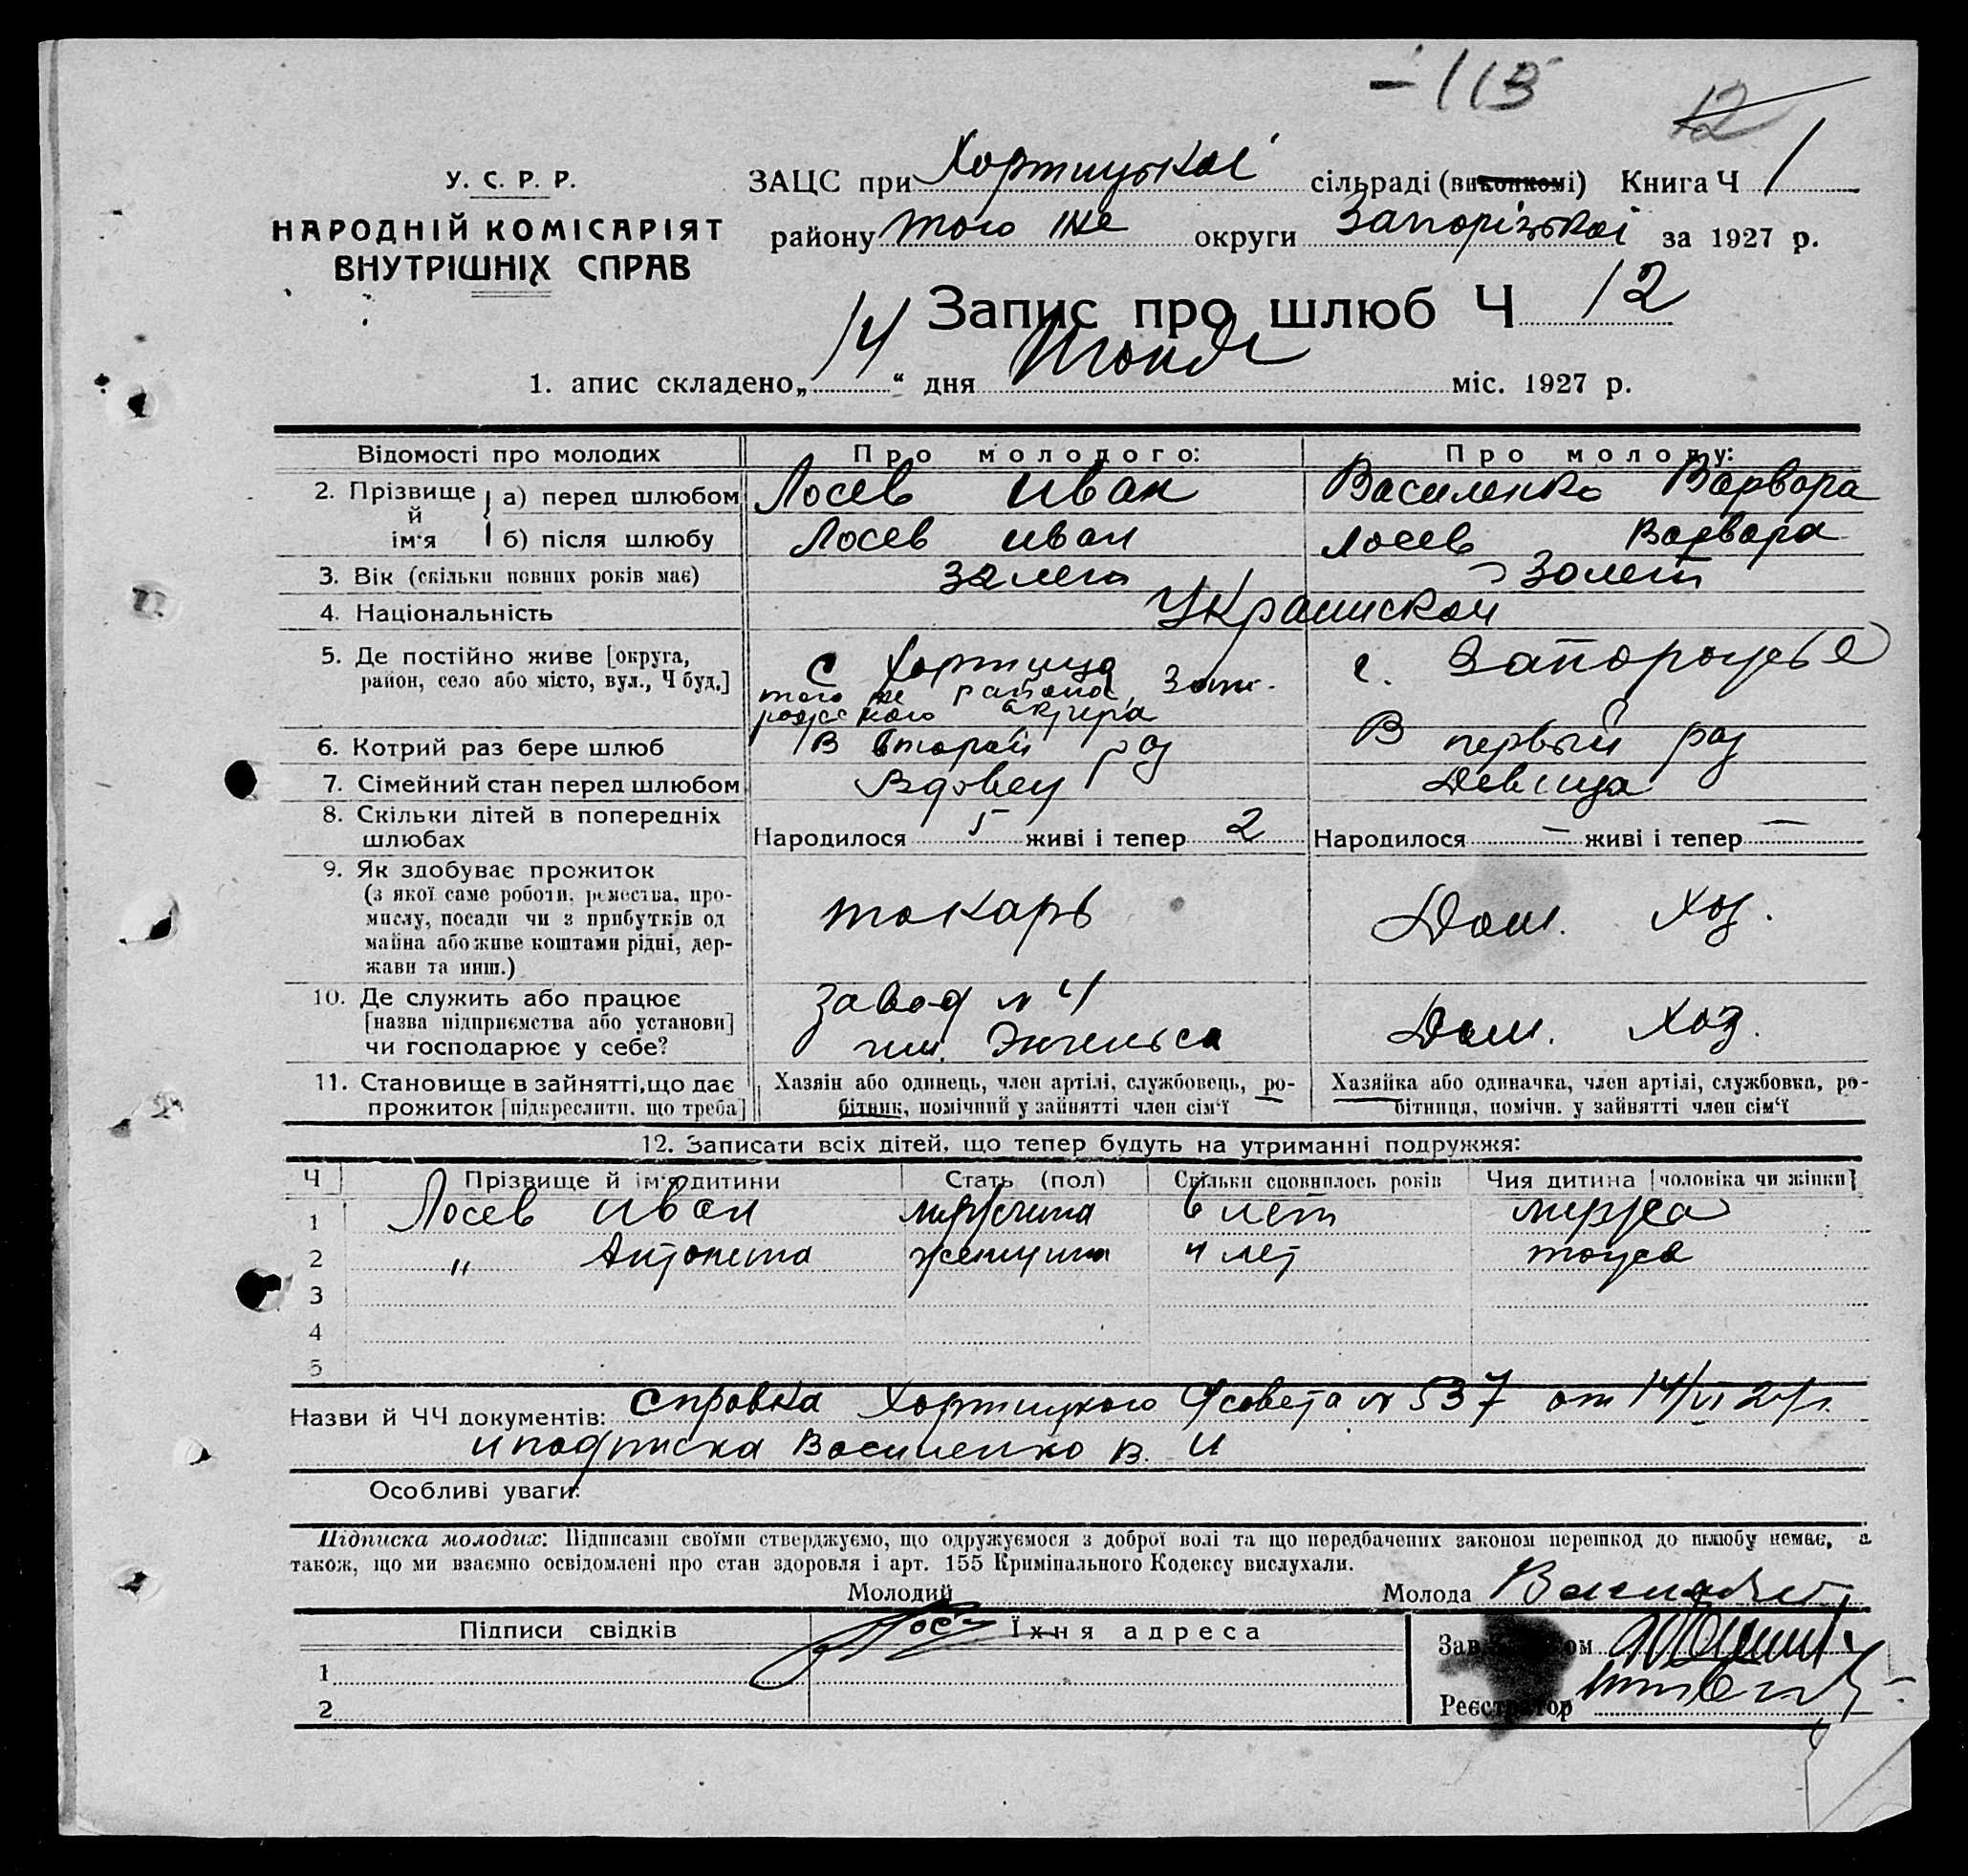 -113
12
У. С. Р. Р.
НАРОДНІЙ КОМІСАРІЯТ
ВНУТРІШНІХ СПРАВ
ЗАЦС при Хортицької сільраді (виконкомі) Книга Ч 1
району того же округи Запорізької за 1927 р.
Запис про шлюб Ч 12
1. апис складено „14“ дня Июня міс. 1927 р.
Відомості про молодих Про молодого: Про молоду:
2. Прізвище й ім'я а) перед шлюбом Лосев Иван Василенко Варвара
б) після шлюбу Лосев Иван Лосев Варвара
3. Вік (скільки повних років має) 32 лета 30 лет
4. Національність Украинской
5. Де постійно живе [округа, район, село або місто, вул., Ч буд.] с Хортица того же района, Запорожского округа г. Запорожье
6. Котрий раз бере шлюб В второй раз В первый раз
7. Сімейний стан перед шлюбом Вдовец Девица
8. Скільки дітей в попередніх шлюбах Народилося 5 живі і тепер 2 Народилося — живі і тепер —
9. Як здобуває прожиток токарь Дом. Хоз.
(з якої саме роботи, ремества, про-
мислу, посади чи з прибутків од
майна або живе коштами рідні, дер-
жави та инш.)
10. Де служить або працює завод № 4
[назва підприємства або установи] им. Энгельса Дом. Хоз.
чи господарює у себе?
11. Становище в зайнятті, що дає Хазяїн або одинець, член артілі, службовець, ро- Хазяйка або одиначка, член артілі, службовка, ро-
прожиток [підкреслити, що треба] бітник, помічний у зайнятті член сім'ї бітниця, помічн. у зайнятті член сім'ї
12. Записати всіх дітей, що тепер будуть на утриманні подружжя:
Ч Прізвище й ім'я дитини Стать (пол) Скільки сповнилось років Чия дитина [чоловіка чи жінки]
1 Лосев Иван мужчина 6 лет мужа
2 „ Антонина женщина 4 лет тоже
3
4
5
Назви й ЧЧ документів: справка Хортицкого С/совета № 537 от 14/VI 27г.
и подписка Василенко В. И
Особливі уваги:
Підписка молодих: Підписами своїми стверджуємо, що одружуємося з доброї волі та що передбачених законом перешкод до шлюбу немає, а
також, що ми взаємно освідомлені про стан здоровля і арт. 155 Кримінального Кодексу вислухали.
Молодий Лос Молода
Підписи свідків Їхня адреса
1
2
Реєстратор